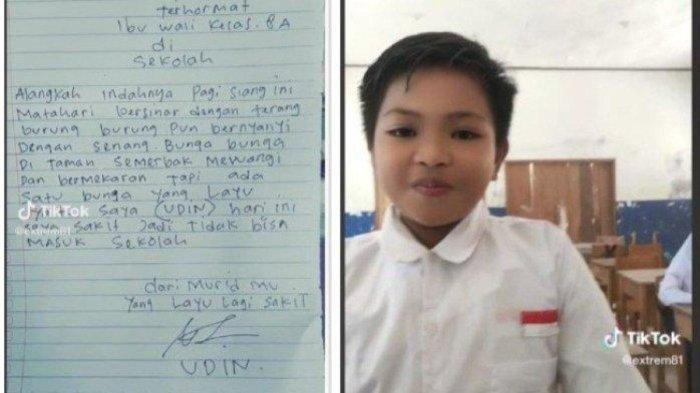 terhormat
Ibu wali kelas.8A
di
Sekolah
Alangkah indahnya Pagi siang ini
Matahari bersinar dengan terang
burung burung Pun bernyanyi
Dengan senang Bunga bunga
Di Taman Semerbak Mewangi
Dan bermekaran Tapi ada
Satu bunga yang Layu
Saya (UDIN) hari ini
sakit Jadi Tidak bisa
MASUK Sekolah
dari Murid mu
yang Layu lagi sakit
UDIN.
TikTok
@extrem81
TikTok
@extrem81